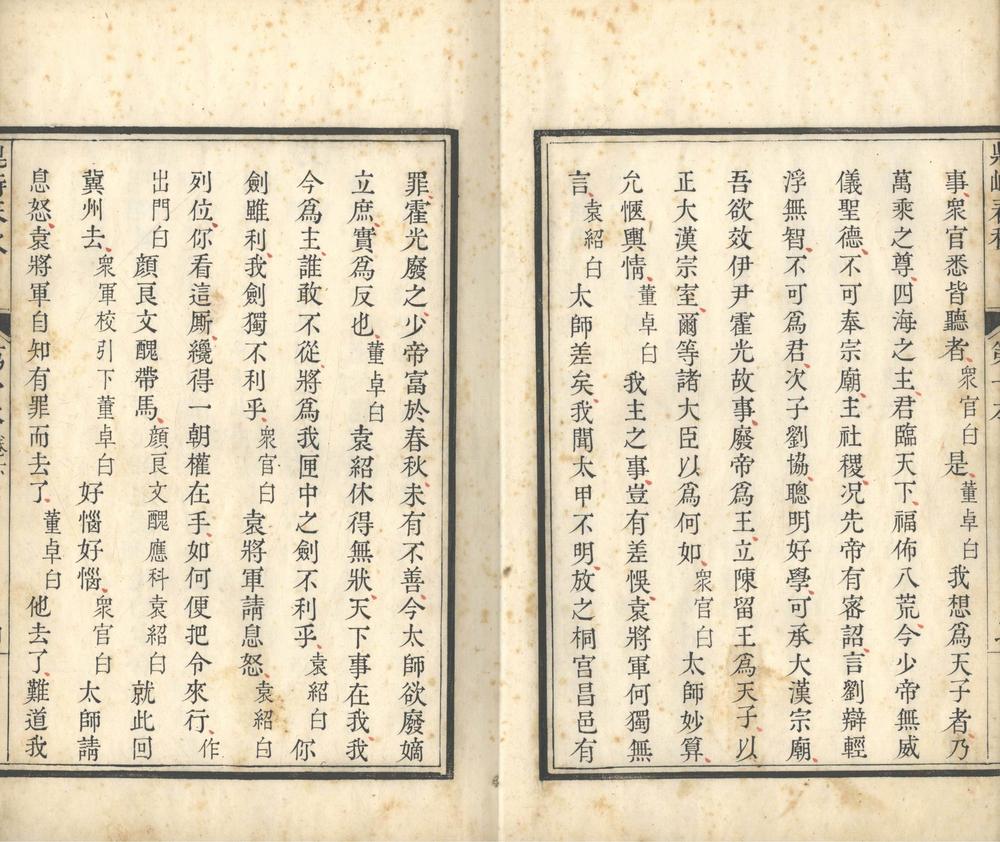 事衆官悉皆聽者衆官白是董卓白我想爲天子者乃
萬乘之尊四海之主君臨天下福佈八荒今少帝無威
儀聖德不可奉宗廟主社稷况先帝有密詔言劉辯輕
浮無智不可爲君次子劉協聰明好學可承大漢宗廟
吾欲效伊尹霍光故事廢帝爲王立陳留王爲天子以
正大漢宗室爾等諸大臣以爲何如衆官白太師妙算
允愜輿情董卓白我主之事豈有差悞袁將軍何獨無
言袁紹白太師差矣我聞太甲不明放之桐宮昌邑有
罪霍光廢之少帝富於春秋未有不善今太師欲廢嫡
立庶實爲反也董卓白袁紹休得無狀天下事在我我
今爲主誰敢不從將爲我匣中之劍不利乎袁紹白你
劍雖利我劍獨不利乎衆官白袁將軍請息怒袁紹白
列位你看這厮纔得一朝權在手如何便把令來行作
出門白顔良文醜帶馬顔良文醜應科袁紹白就此回
冀州去衆軍校引下董卓白好惱好惱衆官白太師請
息怒袁將軍自知有罪而去了董卓白他去了難道我